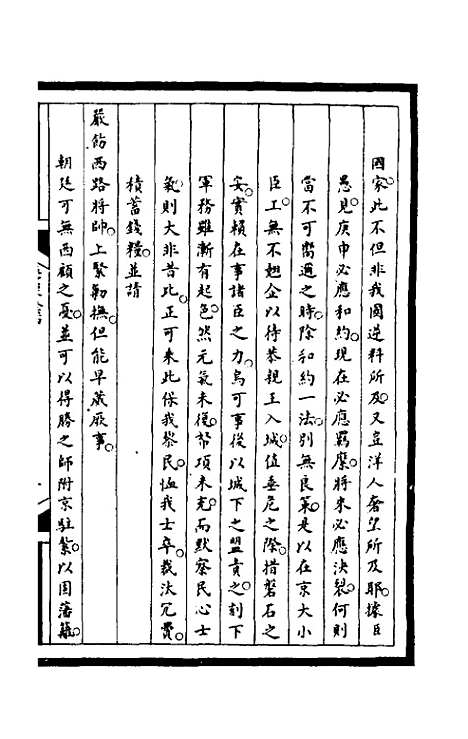 國家此不但非我國逆料所及又豈洋人奢望所及耶據臣
愚見庚申必應和約現在必應羈縻將來必應決裂何則
當不可嚮邇之時除和約一法別無良策是以在京大小
臣工無不翹企以待恭親王入城值垂危之際措磐石之
安實賴在事諸臣之力烏可事後以城下之盟責之刻下
軍務雖漸有起色然元氣未復帑項未充而默察民心士
氣則大非昔比正可乘此保我黎民恤我士卒裁汰冗費
積蓄錢糧並請
嚴飭西路將帥上緊勦撫但能早蕆厥事
朝廷可無西顧之憂並可以得勝之師附京駐紮以固藩籬